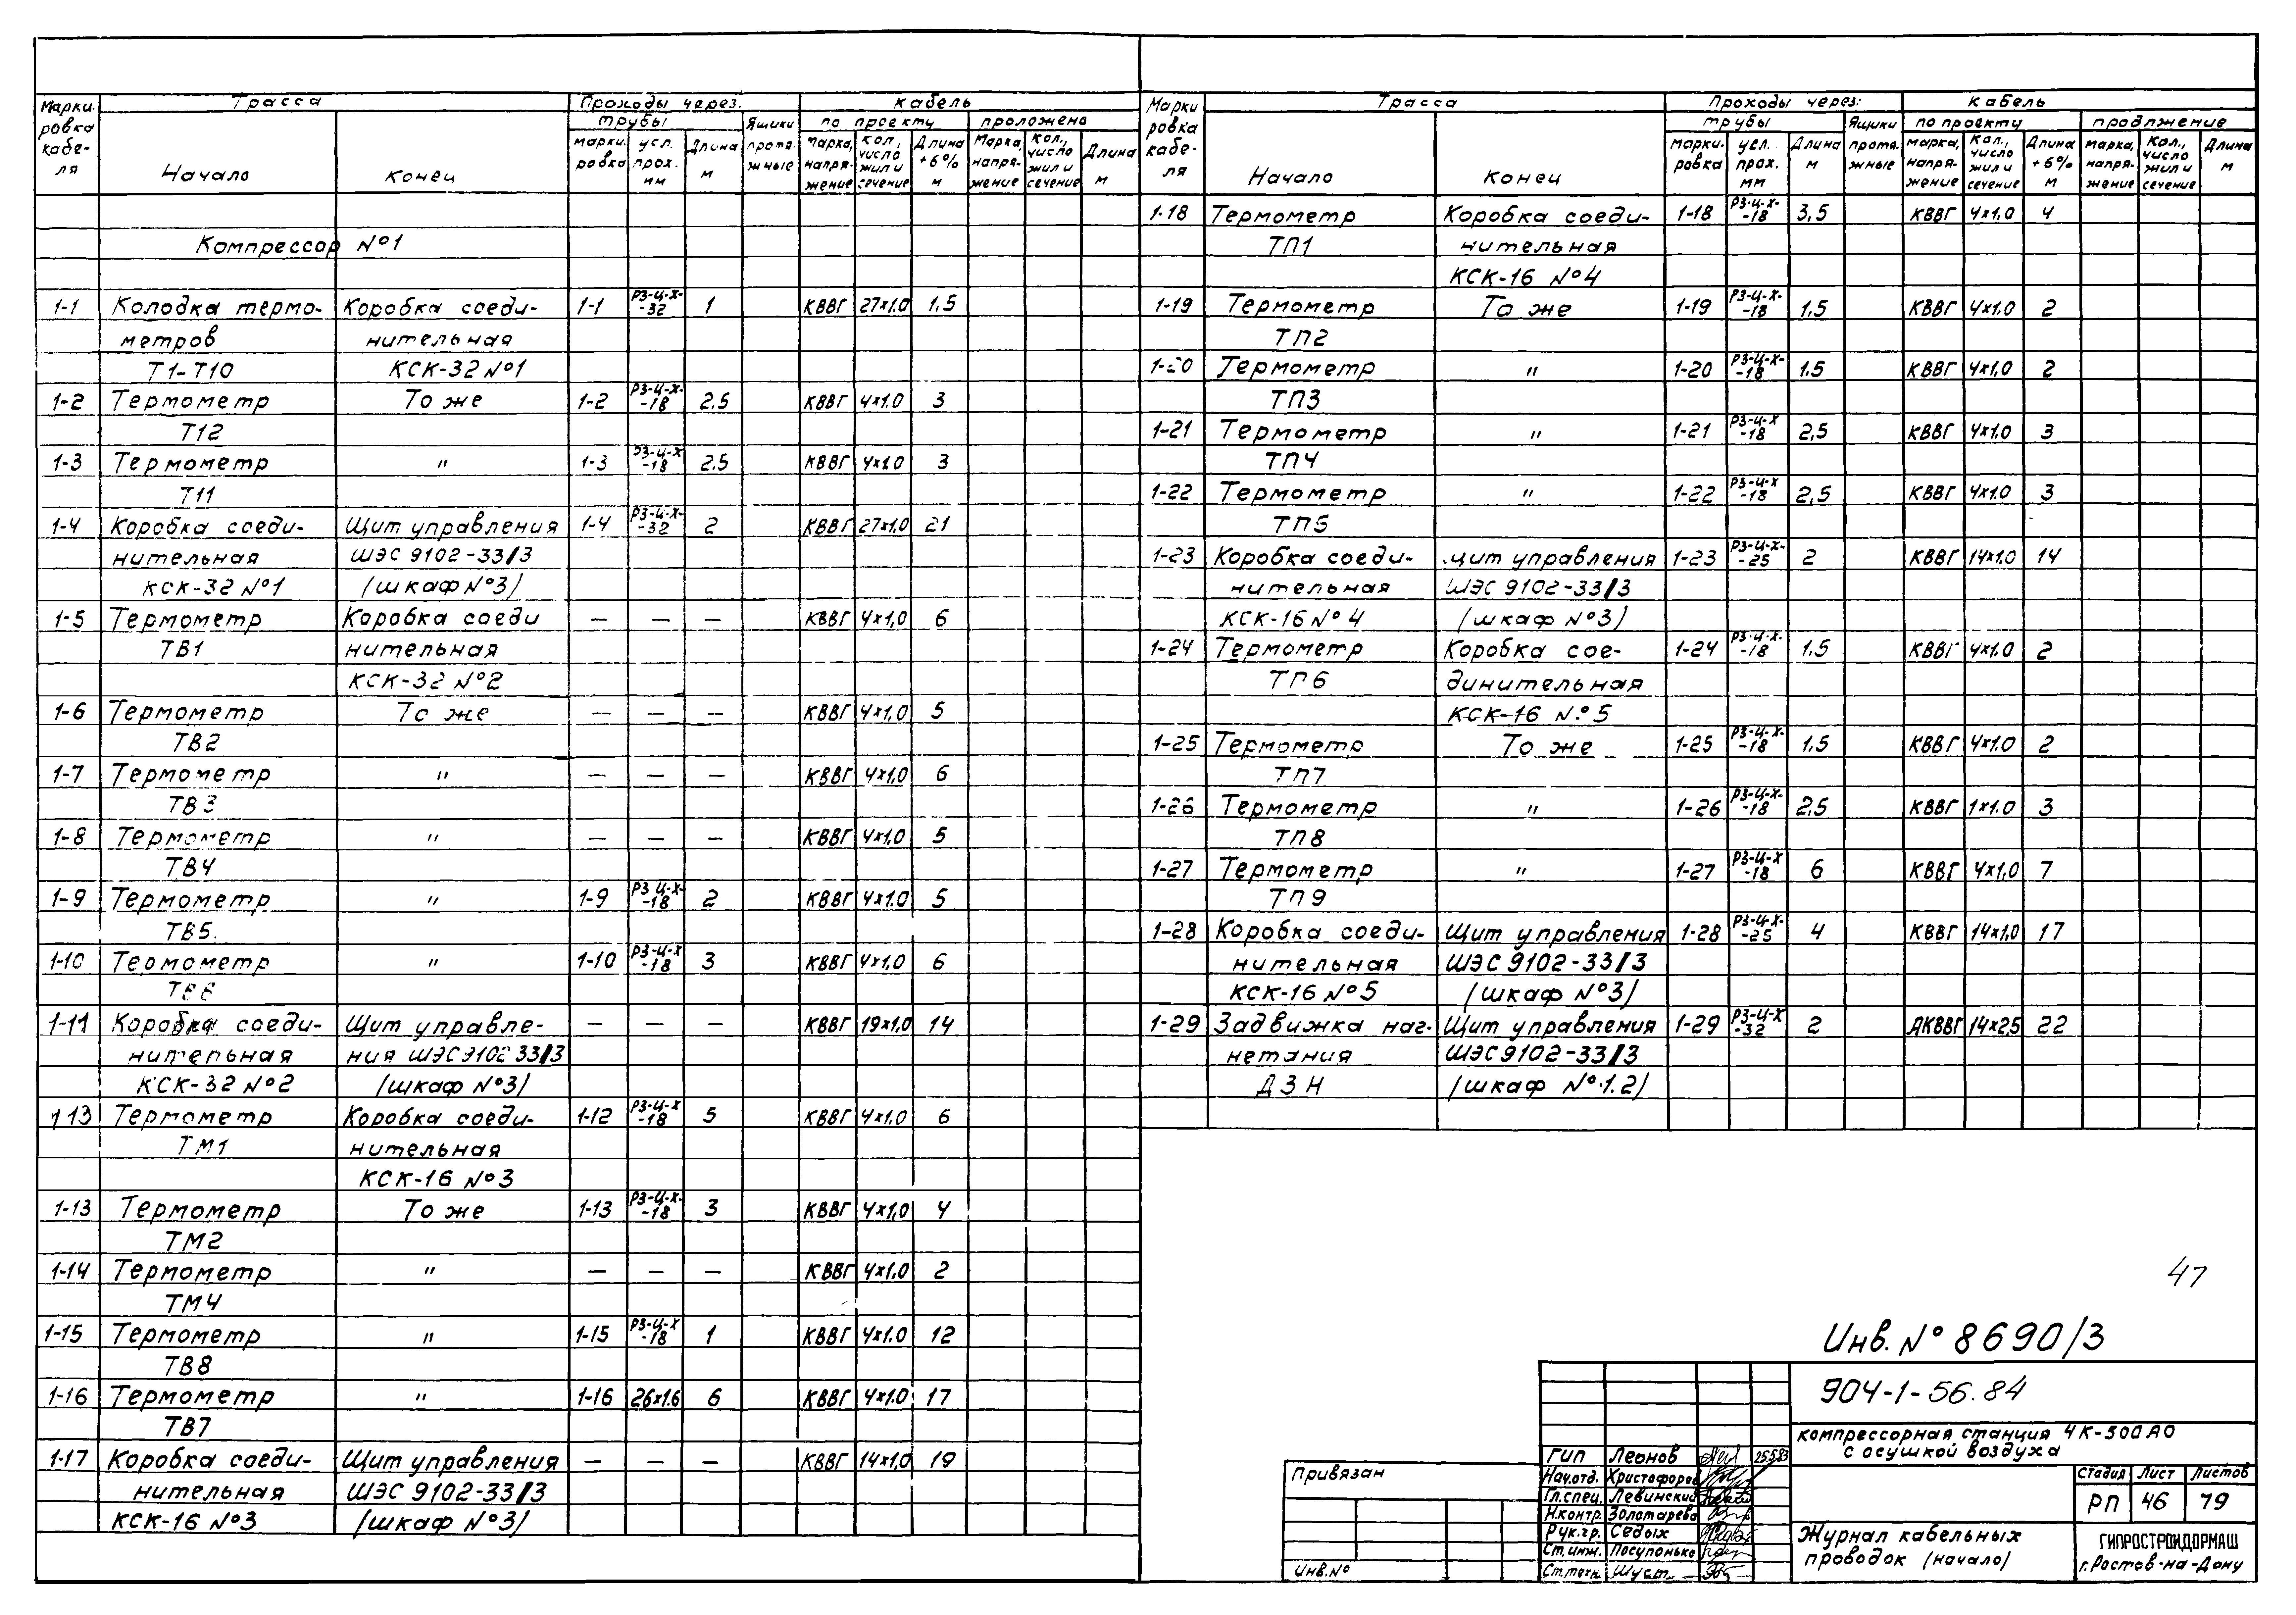 Марки-
ровка
кабе-
ля
Трасса
Начало
Конец
Проходы через:
трубы
марки-
ровка
усл.
прох.
мм
Длина
м
Ящики
протя-
жные
кабель
по проекту
Марка,
напря-
жение
кол.,
число
жил и
сечение
Длина
+6%
м
проложено
Марка,
напря-
жение
Кол.,
число
жил и
сечение
Длина
м
Компрессор №1
1-1 Колодка термо- Коробка соеди- 1-1 РЗ-Ц-Х-
-32 1 КВВГ 27х1.0 1,5
метров нительная
Т1-Т10 КСК-32 №1
1-2 Термометр То же 1-2 РЗ-Ц-Х-
-18 2,5 КВВГ 4х1.0 3
Т12
1-3 Термометр " 1-3 РЗ-Ц-Х
-18 2,5 КВВГ 4х1.0 3
Т11
1-4 Коробка соеди- Щит управления 1-4 РЗ-Ц-Х-
-32 2 КВВГ 27х1,0 21
нительная ШЭС 9102-33/3
КСК-32 №1 (шкаф №3)
1-5 Термометр Коробка соеди — — — КВВГ 4х1,0 6
ТВ1 нительная
КСК-32 №2
1-6 Термометр То же — — — КВВГ 4х1,0 5
ТВ2
1-7 Термометр " — — — КВВГ 4х1,0 6
ТВ3
1-8 Термометр " — — — КВВГ 4х1.0 5
ТВ4
1-9 Термометр " 1-9 РЗ Ц-Х-
-18 2 КВВГ 4х1.0 5
ТВ5.
1-10 Термометр " 1-10 РЗ-Ц-Х
-18 3 КВВГ 4х1,0 6
ТВ6
1-11 Коробка соеди- Щит управле- — — — КВВГ 19х1,0 14
нительная ния ШЭС9102 33/3
КСК-32 №2 (шкаф №3)
1 13 Термометр Коробка соеди- 1-12 РЗ-Ц-Х
-18 5 КВВГ 4х1,0 6
ТМ1 нительная
КСК-16 №3
1-13 Термометр То же 1-13 РЗ-Ц-Х-
-18 3 КВВГ 4х1,0 4
ТМ2
1-14 Термометр " — — — КВВГ 4х1,0 2
ТМ4
1-15 Термометр " 1-15 РЗ-Ц-Х
-18 1 КВВГ 4х1.0 12
ТВ8
1-16 Термометр " 1-16 26х1.6 6 КВВГ 4х1.0 17
ТВ7
1-17 Коробка соеди- Щит управления — — — КВВГ 14х1,0 19
нительная ШЭС 9102-33/3
КСК-16 №3 (шкаф №3)
Марки
ровка
кабе-
ля
Трасса
Начало
Конец
Проходы через:
трубы
марки-
ровка
усл.
прох.
мм
Длина
м
Ящики
протя-
жные
кабель
по проекту
марка,
напря-
жение
Кол.,
число
жил и
сечение
Длина
+6%
м
продлжение
марка,
напря-
жение
Кол.,
число
жил и
сечение
Длина
м
1-18 Термометр Коробка соеди- 1-18 РЗ-Ц-Х-
-18 3,5 КВВГ 4х1,0 4
ТП1 нительная
КСК-16 №4
1-19 Термометр То же 1-19 РЗ-Ц-Х-
-18 1,5 КВВГ 4х1,0 2
ТП2
1-20 Термометр " 1-20 РЗ-Ц-Х-
-18 1,5 КВВГ 4х1,0 2
ТП3
1-21 Термометр " 1-21 РЗ-Ц-Х
-18 2,5 КВВГ 4х1.0 3
ТП4
1-22 Термометр " 1-22 РЗ-Ц-Х
-18 2,5 КВВГ 4х1.0 3
ТП5
1-23 Коробка соеди- щит управления 1-23 РЗ-Ц-Х-
-25 2 КВВГ 14х1,0 14
нительная ШЭС 9102-33/3
КСК-16 №4 (шкаф №3)
1-24 Термометр Коробка сое- 1-24 РЗ-Ц-Х-
-18 1.5 КВВГ 4х1.0 2
ТП6 динительная
КСК-16 №5
1-25 Термометр То же 1-25 РЗ-Ц-Х-
-18 1.5 КВВГ 4х1.0 2
ТП7
1-26 Термометр " 1-26 РЗ-Ц-Х-
-18 2,5 КВВГ 1х1.0 3
ТП8
1-27 Термометр " 1-27 РЗ-Ц-Х
-18 6 КВВГ 4х1,0 7
ТП9
1-28 Коробка соеди- Щит управления 1-28 РЗ-Ц-Х-
-25 4 КВВГ 14х1,0 17
нительная ШЭС 9102-33/3
КСК-16 №5 (шкаф №3)
1-29 Задвижка наг- Щит управления 1-29 РЗ-Ц-Х
-32 2 АКВВГ 14х2,5 22
нетания ШЭС9102-33/3
ДЗН (шкаф №1.2)
47
Инв. № 8690/3
904-1-56.84
компрессорная станция 4К-500АО
с осушкой воздуха
Стадия Лист Листов
РП 46 79
Журнал кабельных
проводок (начало)
ГИПРОСТРОЙДОРМАШ
г.Ростов-на-Дону
Гип Леонов 25.5.83
Нач.отд. Христофоров
Гл.спец. Левинский
Н.контр. Золотарева
Рук.гр. Седых
Ст.инж. Посупонько
Ст.техн. Шуст
Привязан
Инв.№